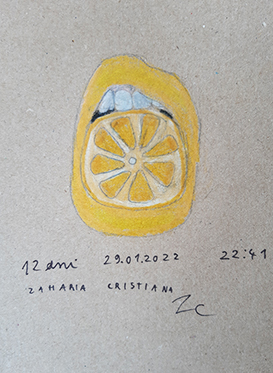 12 ani 29.01.2022 22:41
ZAHARIA CRISTIANA
ZC